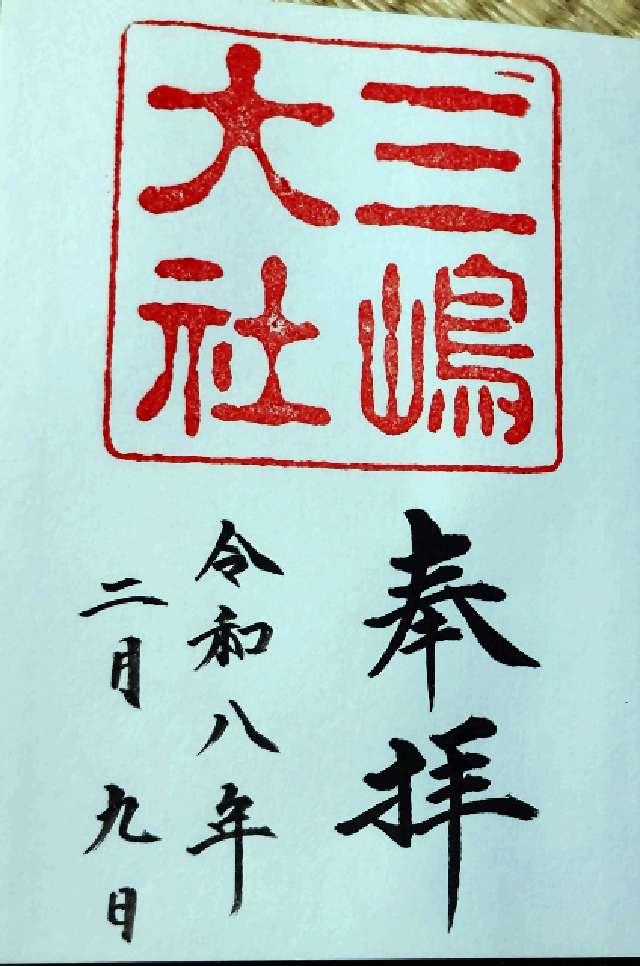 三嶋
大社
奉拝
令和八年
二月九日